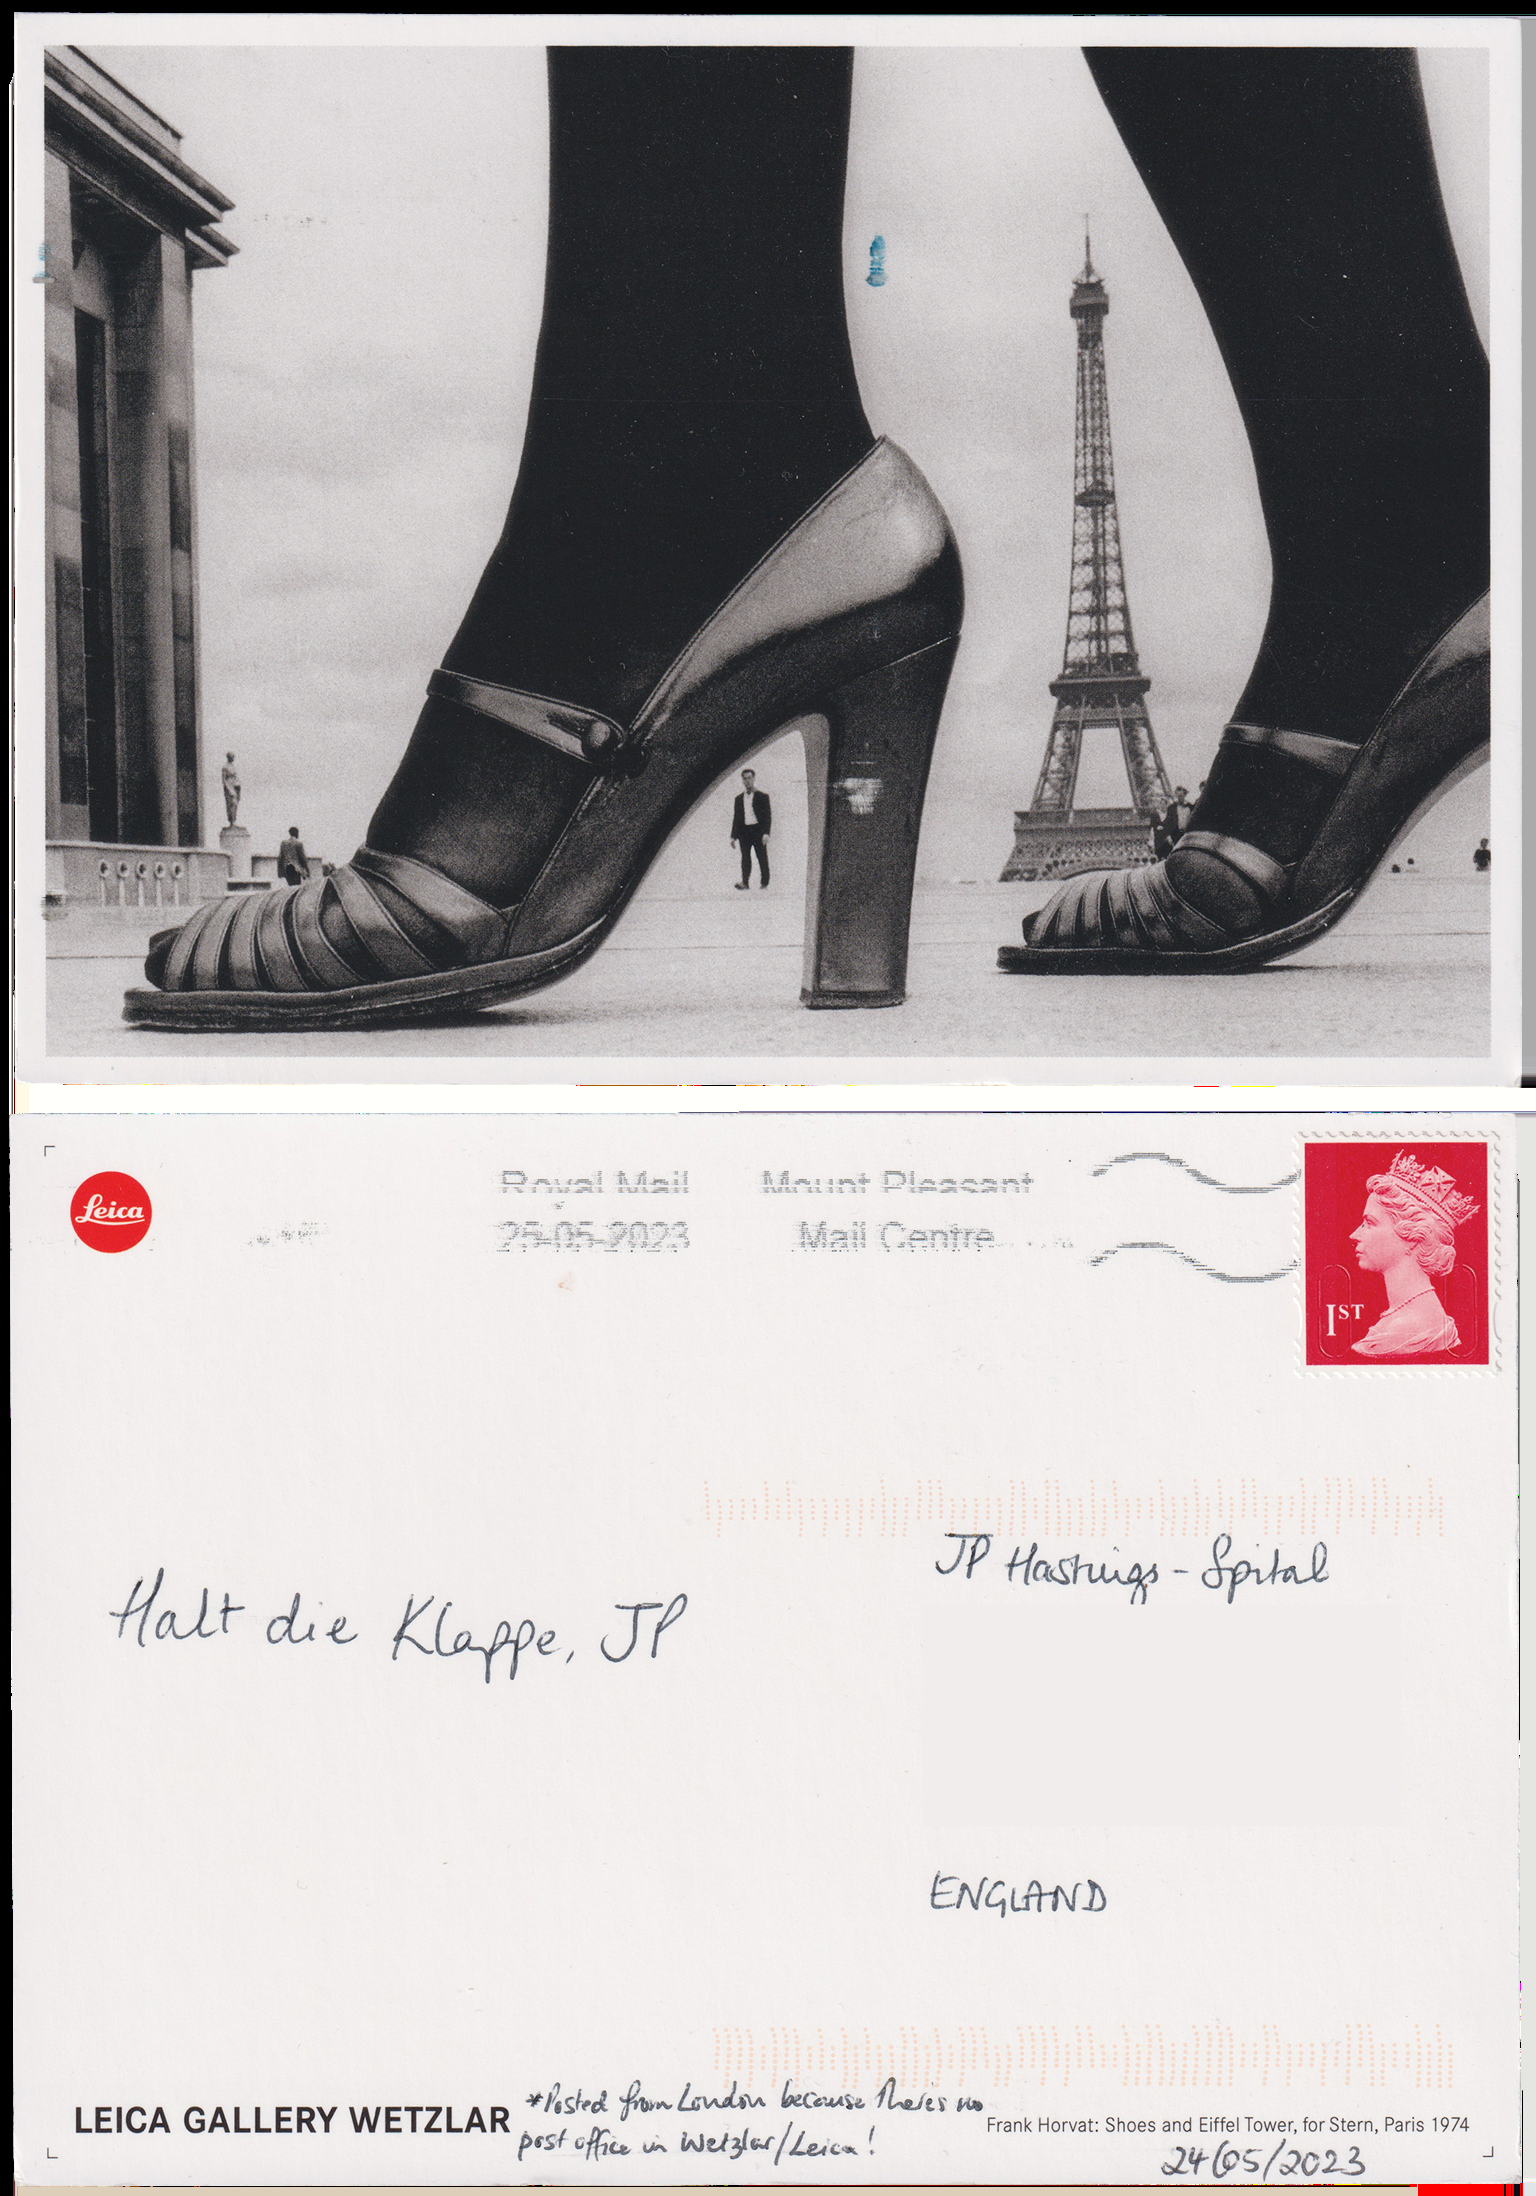 Leica
Royal Mail Mount Pleasant
25-05-2023 Mail Centre
1ST
JP Hastings-Spital
Halt die Klappe, JP
ENGLAND
LEICA GALLERY WETZLAR
*Posted from London because there's no
post office in Wetzlar/Leica!
Frank Horvat: Shoes and Eiffel Tower, for Stern, Paris 1974
24/05/2023